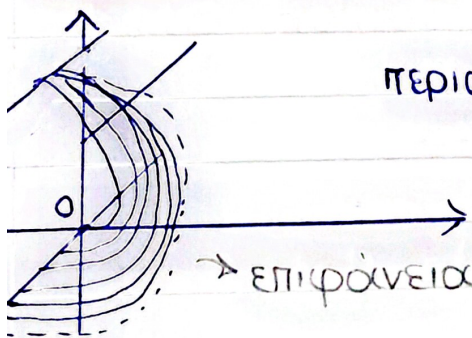 περιο
Ο
επιφάνεια